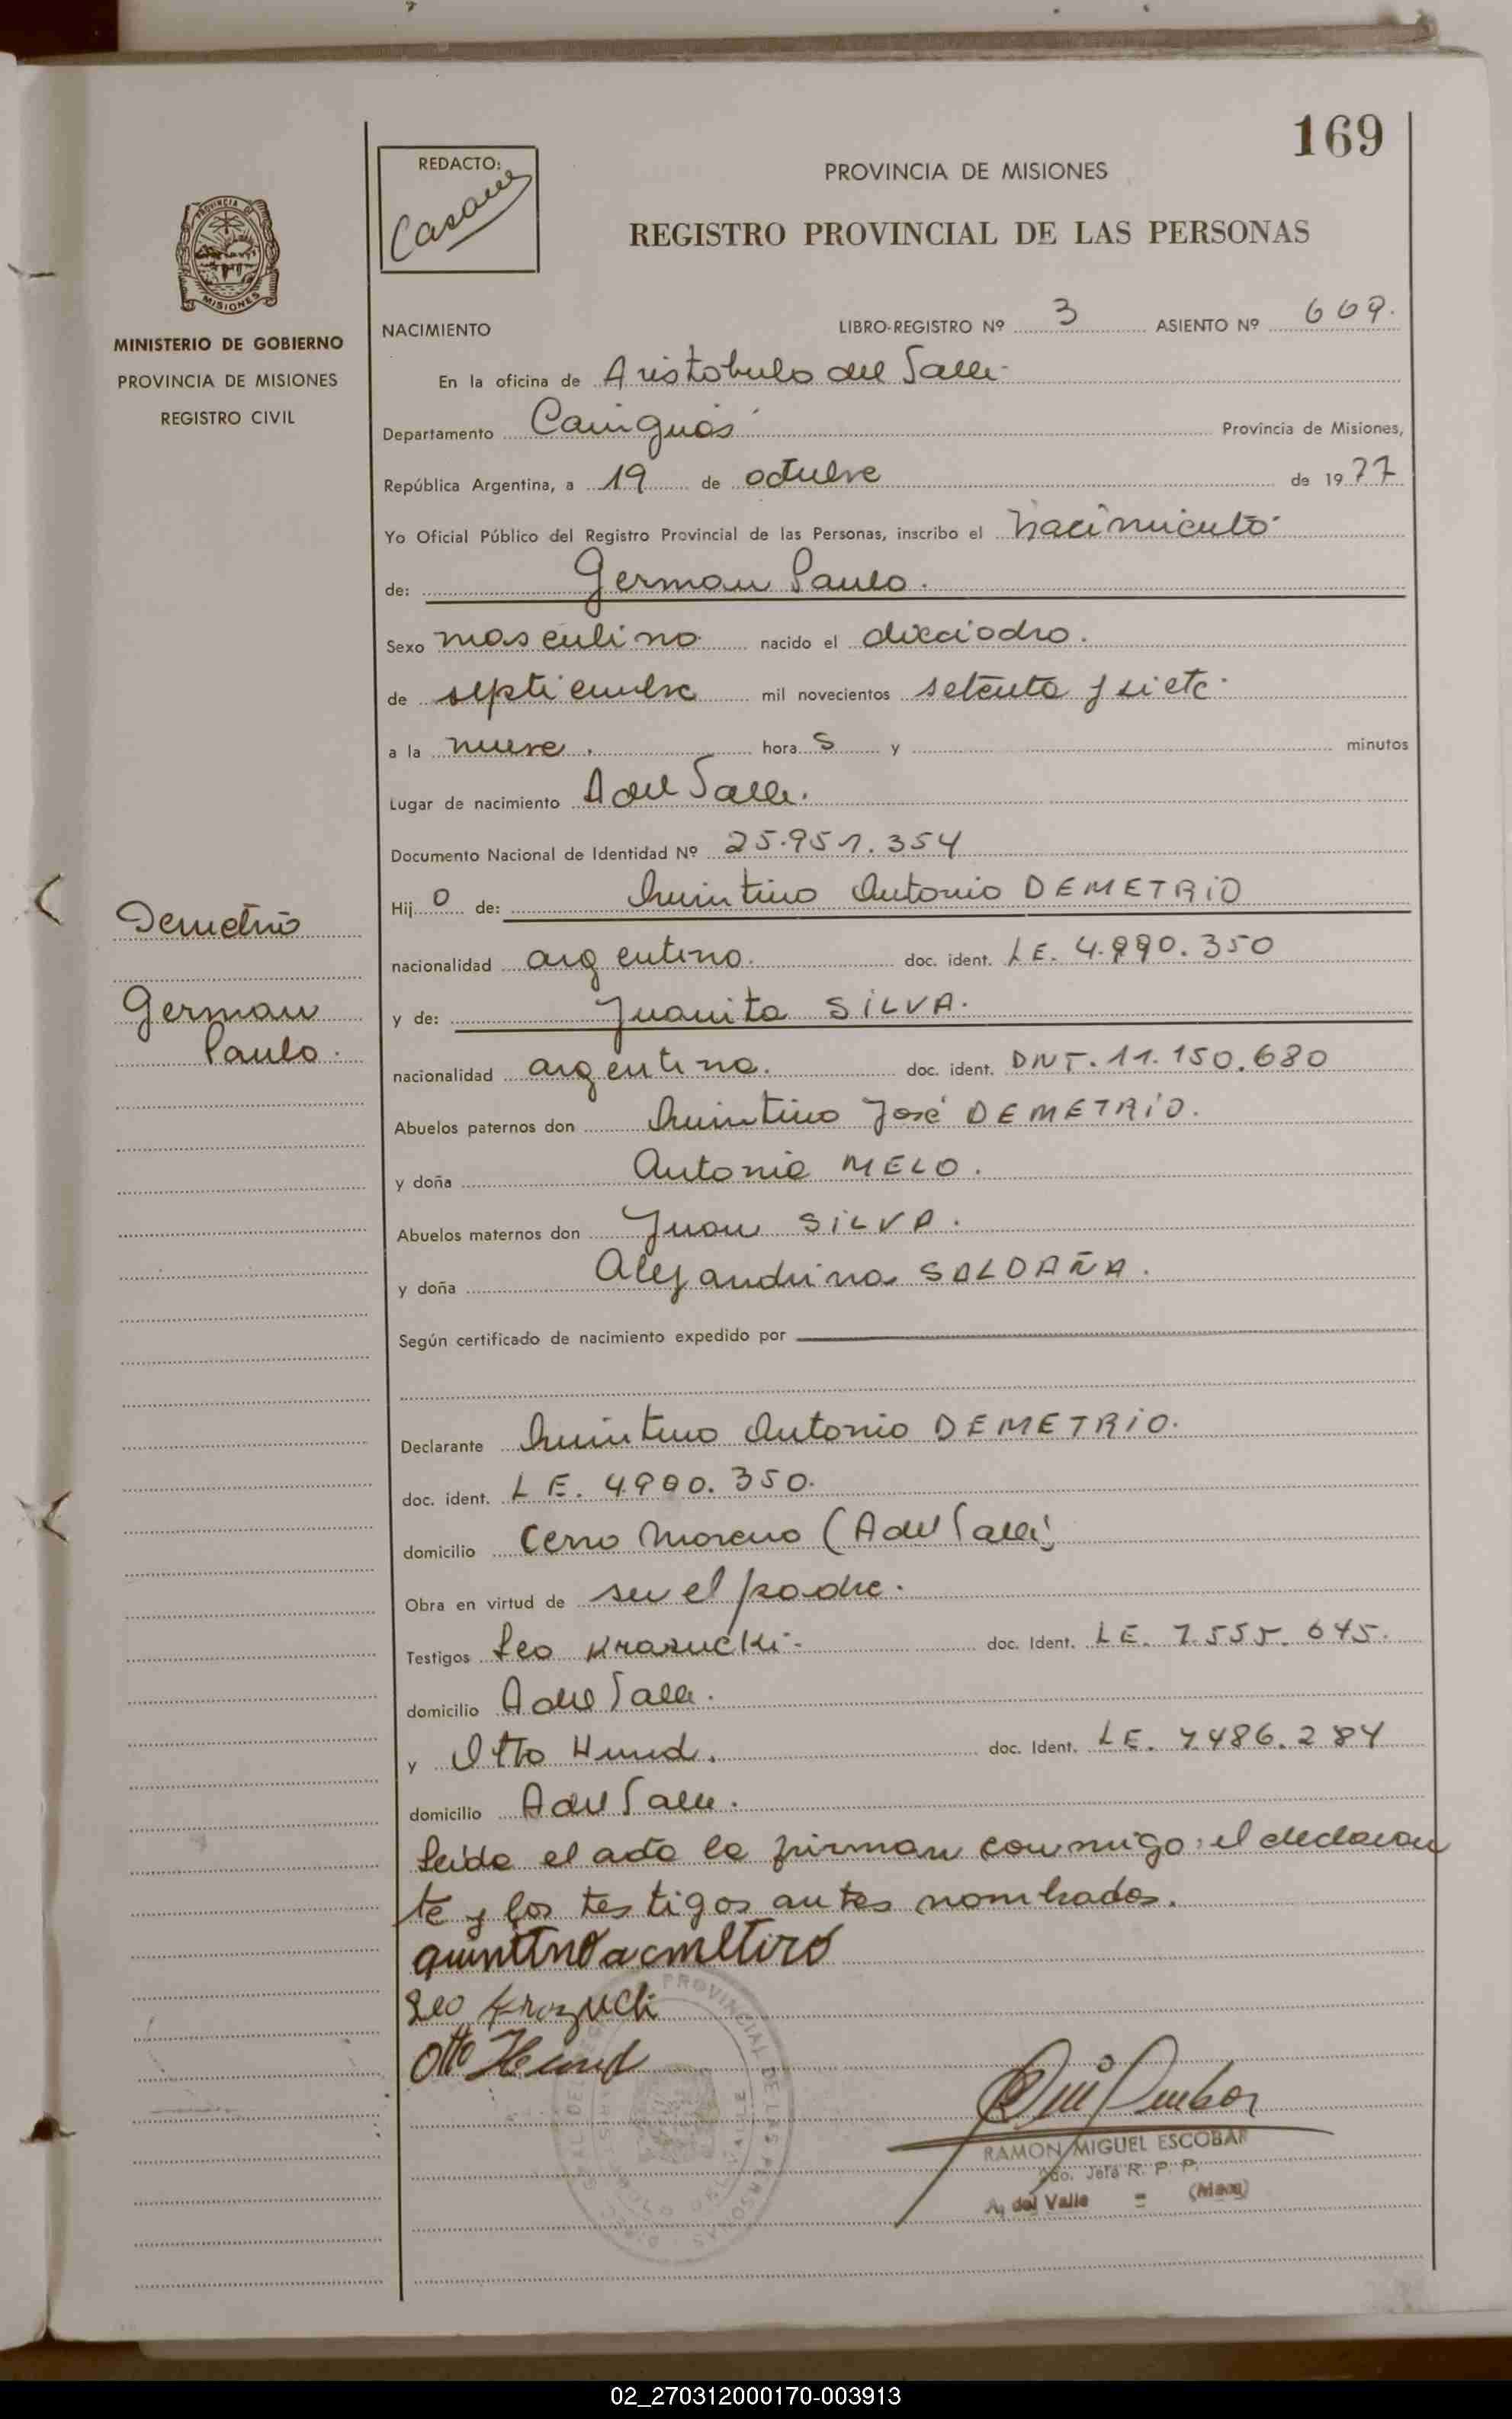 169
REDACTO:
PROVINCIA DE MISIONES
REGISTRO PROVINCIAL DE LAS PERSONAS
PROVINCIA DE
MISIONES
MINISTERIO DE GOBIERNO
PROVINCIA DE MISIONES
REGISTRO CIVIL
NACIMIENTO LIBRO-REGISTRO Nº 3 ASIENTO Nº 609.
En la oficina de Aristobulo del Valle
Departamento Cainguás
Provincia de Misiones,
República Argentina, a 19 de octubre de 1977
Yo Oficial Público del Registro Provincial de las Personas, inscribo el nacimiento
de: German Paulo.
Sexo masculino nacido el dieciocho.
de septiembre mil novecientos setenta y siete
a la nueve. hora s y minutos
Lugar de nacimiento A del Valle.
Documento Nacional de Identidad Nº 25.951.354
Hij o de: Quintino Antonio DEMETRIO
Demetrio
nacionalidad argentino. doc. ident. LE. 4.990.350
German
Paulo.
y de: Juanita SILVA.
nacionalidad argentina. doc. ident. DNI. 11.150.680
Abuelos paternos don Quintino José DEMETRIO.
y doña Antonia MELO.
Abuelos maternos don Juan SILVA.
y doña Alejandrina SALDAÑA.
Según certificado de nacimiento expedido por
Declarante Quintino Antonio DEMETRIO.
doc. ident. LE. 4990.350.
domicilio Cerro Moreno (A del Valle)
Obra en virtud de ser el padre.
Testigos Leo Krazucki. doc. Ident. LE. 7.555.645.
domicilio A del Valle.
y Otto Hund. doc. Ident. LE. 7.486.284
domicilio A del Valle.
Leida el acta la firman conmigo: el declaran
te y los testigos antes nombrados.
Leo Krazucki
Otto Hund
RAMON MIGUEL ESCOBAR
Jefe R. P. P.
A. del Valle = (Mnes)
PROVINCIAL DE LAS PERSONAS
02_270312000170-003913